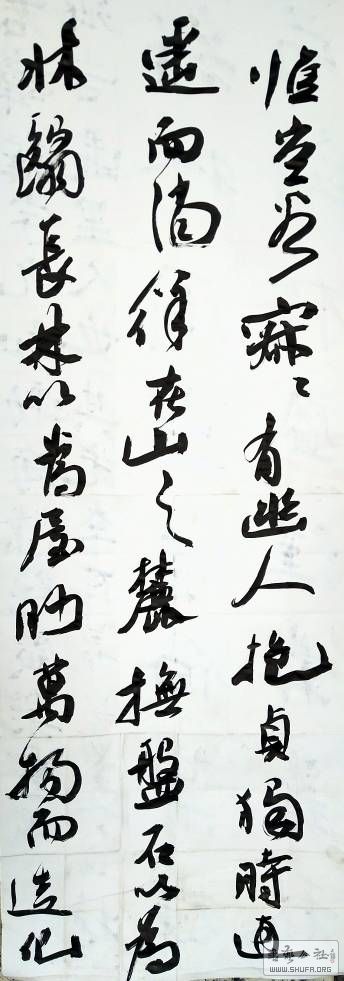 惟空谷寂々有幽人抱貞獨時逍
遙而徜徉在山之麓撫盤石以為
牀翳長林以為屋眇萬物而達觀
WWW.SHUFA.ORG